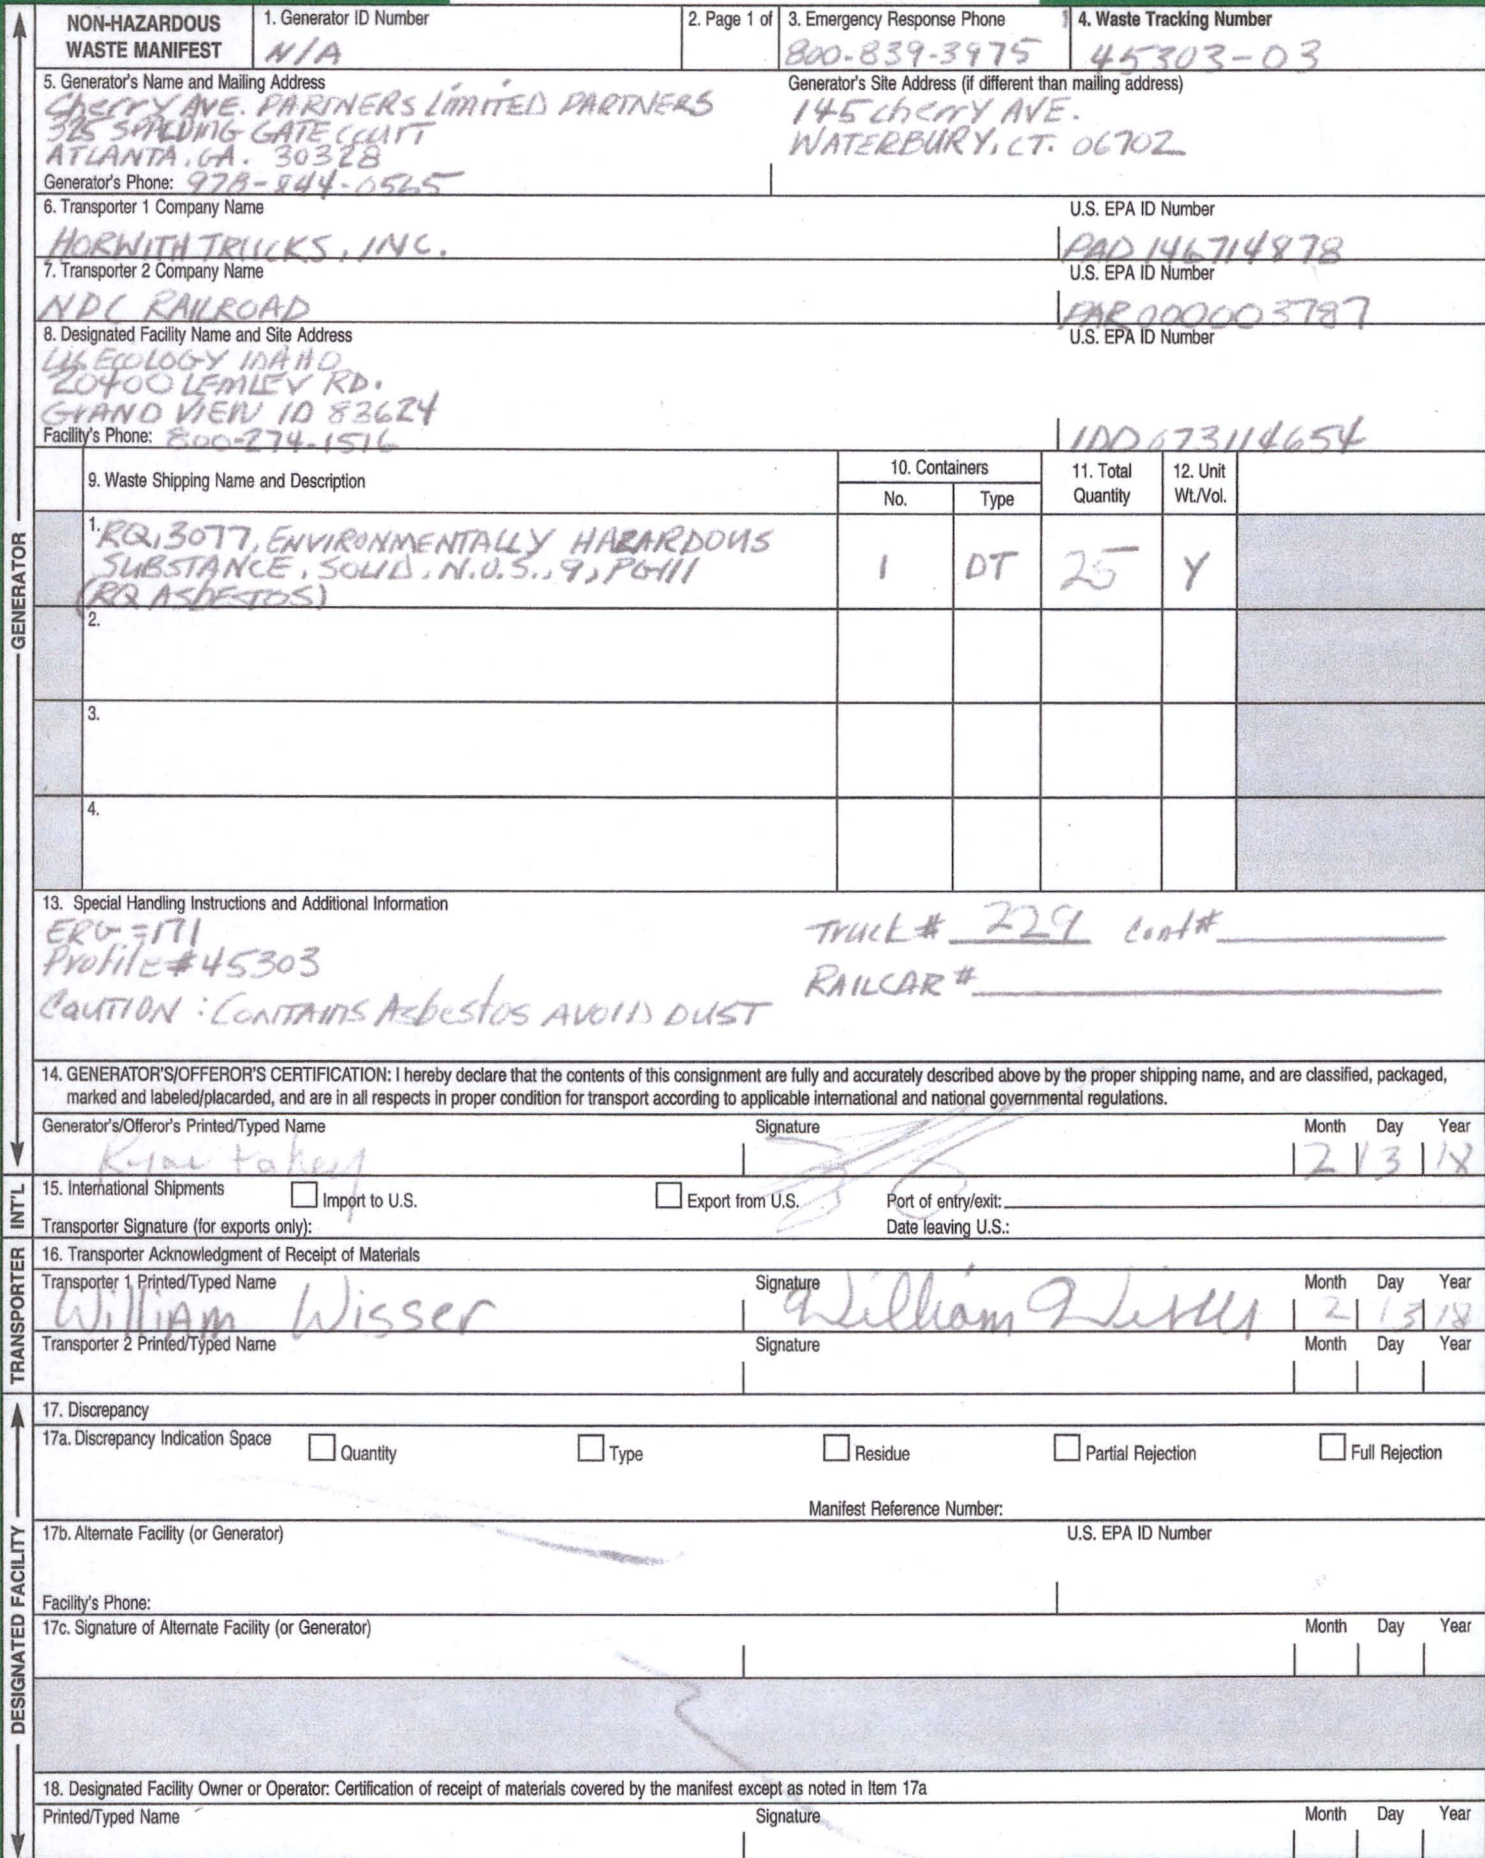 NON-HAZARDOUS WASTE MANIFEST
1. Generator ID Number
N/A
2. Page 1 of
3. Emergency Response Phone
800-839-3975
4. Waste Tracking Number
45303-03
5. Generator's Name and Mailing Address
Cherry AVE. PARTNERS LIMITED PARTNERS
325 SPALDING GATE COURT
ATLANTA, GA. 30328
Generator's Phone: 978-844-0565
Generator's Site Address (if different than mailing address)
145 cherry AVE.
WATERBURY, CT. 06702
6. Transporter 1 Company Name
HORWITH TRUCKS, INC.
U.S. EPA ID Number
PAD 146714878
7. Transporter 2 Company Name
NDC RAILROAD
U.S. EPA ID Number
PAR000003787
8. Designated Facility Name and Site Address
US ECOLOGY IDAHO
20400 LEMLEY RD.
GRAND VIEW ID 83624
Facility's Phone: 800-274-1516
U.S. EPA ID Number
IDD073114654
9. Waste Shipping Name and Description
10. Containers
No.
Type
11. Total Quantity
12. Unit Wt./Vol.
GENERATOR
1. RQ, 3077, ENVIRONMENTALLY HAZARDOUS
SUBSTANCE, SOLID, N.O.S., 9, PGIII
(RQ ASbESTOS)
1 DT 25 Y
2.
3.
4.
13. Special Handling Instructions and Additional Information
ERG = 171
Profile # 45303
CAUTION : CONTAINS Asbestos AVOID DUST
Truck # 229 Cont#
RAILCAR #
14. GENERATOR'S/OFFEROR'S CERTIFICATION: I hereby declare that the contents of this consignment are fully and accurately described above by the proper shipping name, and are classified, packaged,
marked and labeled/placarded, and are in all respects in proper condition for transport according to applicable international and national governmental regulations.
Generator's/Offeror's Printed/Typed Name
Signature
Month Day Year
2 13 18
INT'L
15. International Shipments
Import to U.S.
Export from U.S.
Port of entry/exit:
Transporter Signature (for exports only):
Date leaving U.S.:
TRANSPORTER
16. Transporter Acknowledgment of Receipt of Materials
Transporter 1 Printed/Typed Name
William Wisser
Signature
William Wisser
Month Day Year
2 13 18
Transporter 2 Printed/Typed Name
Signature
Month Day Year
DESIGNATED FACILITY
17. Discrepancy
17a. Discrepancy Indication Space
Quantity
Type
Residue
Partial Rejection
Full Rejection
Manifest Reference Number:
17b. Alternate Facility (or Generator)
U.S. EPA ID Number
Facility's Phone:
17c. Signature of Alternate Facility (or Generator)
Month Day Year
18. Designated Facility Owner or Operator: Certification of receipt of materials covered by the manifest except as noted in Item 17a
Printed/Typed Name
Signature
Month Day Year